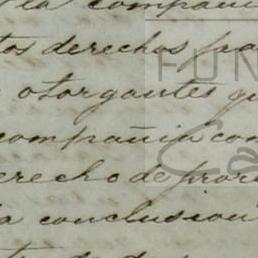 la compañia
tos derechos
otorgantes
FUN
compañia con
Ca
derecho de pror
la conclusion